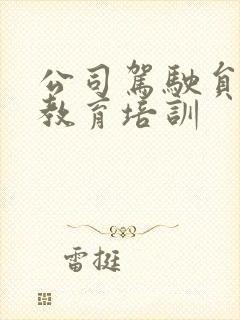 公司駕駛員
教育培訓
雷挺